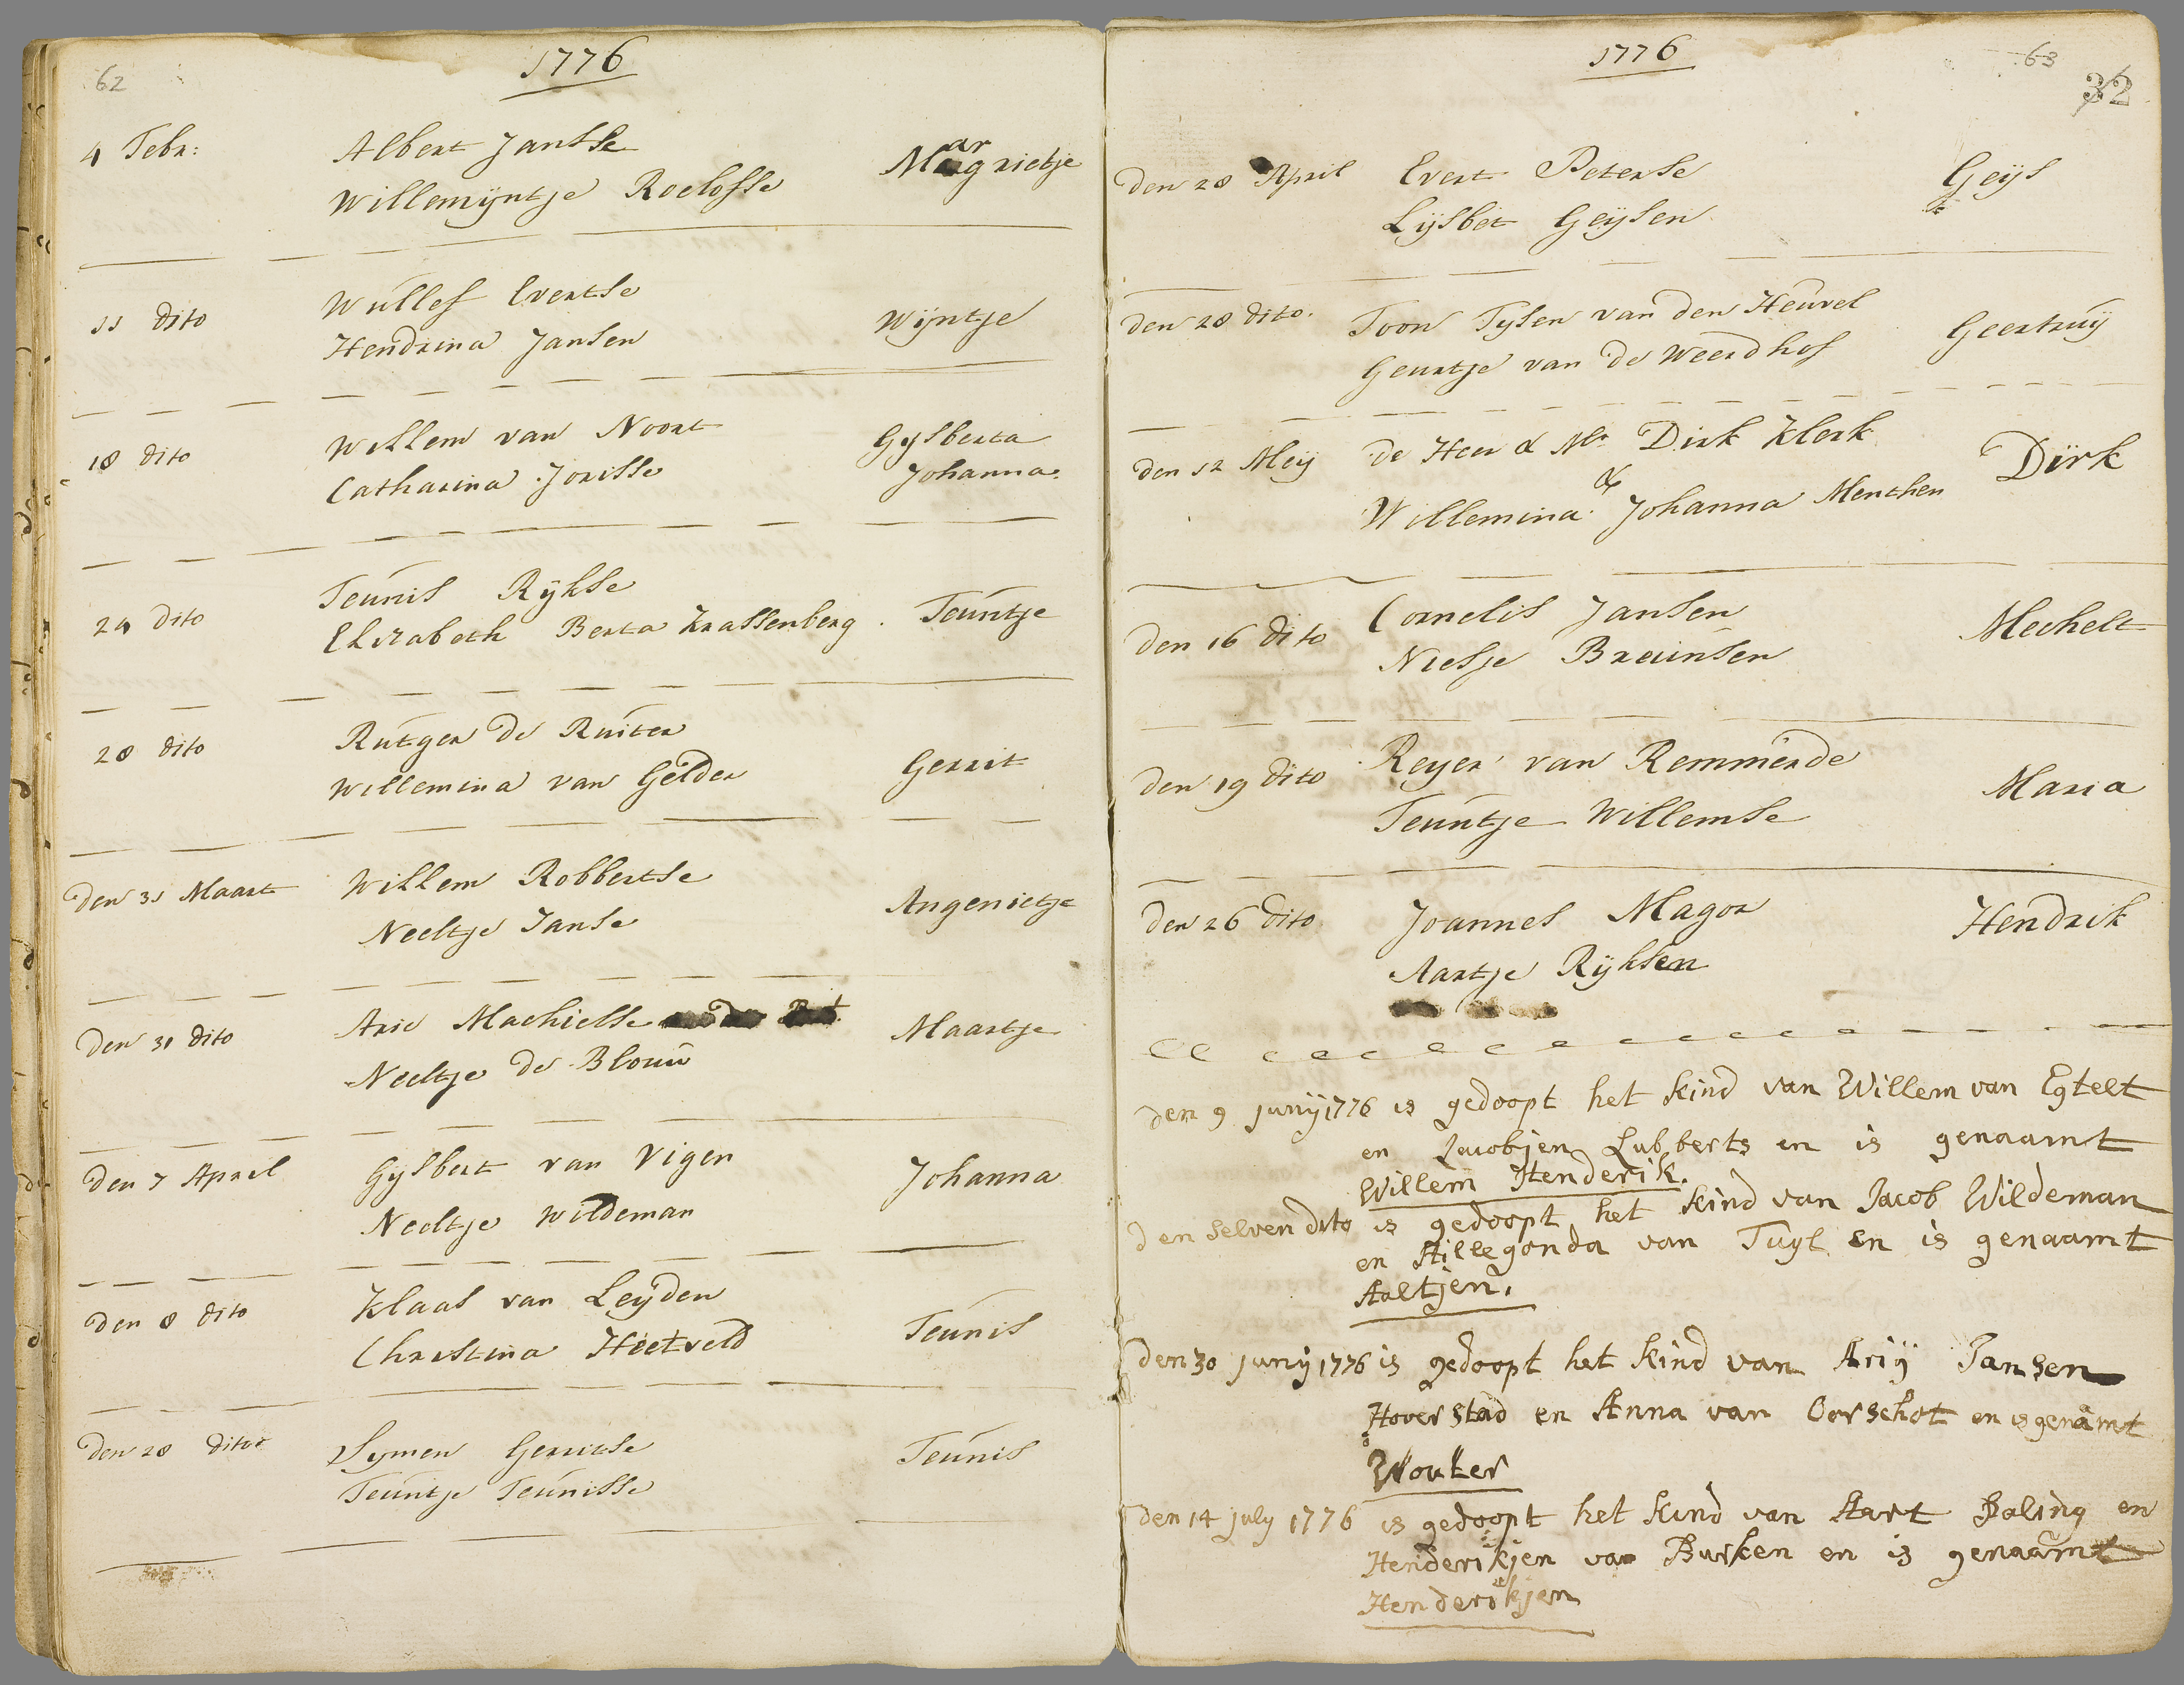 62
1776
4 Febr:
Albert Jansse
Margrietje
Willemijntje Roelofse
11 dito
Wullef Evertse
Wijntje
Hendrina Jansen
18 dito
Willem van Noort
Gysberta
Catharina Jorisse
Johanna.
24 dito
Teunis Rykse
Teuntje
Elisabeth Berta Krassenberg.
28 dito
Rutger de Ruiter
Gerrit
Willemina van Gelder
den 31 Maart
Willem Robbertse
Angenietje
Neeltje Janse
den 31 dito
Arie Machielse
Maartje
Neeltje de Blouw
den 7 April
Gysbert van Vigen
Johanna
Neeltje Wildeman
den 8 dito
Klaas van Leyden
Teunis
Christina Heetveld
den 28 dito
Symen Gerritse
Teunis
Teuntje Teunisse
1776
63
32
den 28 April
Evert Peterse
Geijs
Lijsbet Geijsen
den 28 dito.
Toon Tysen van den Heuvel
Geertruij
Geurtje van de Weerdhof
den 12 Meij
de Heer & Mr. Dirk Klerk
Dirk
&
Willemina Johanna Menthen
den 16 dito
Cornelis Jansen
Mechelt
Niesje Breunsen
den 19 dito
Reyer van Remmerde
Maria
Teuntje Willemse
den 26 dito
Joannes Magor
Hendrik
Aartje Rijksen
den 9 Junij 1776 is gedoopt het kind van Willem van Egtelt
en Jacobjen Lubberts en is genaamt
Willem Henderik.
den selven dito is gedoopt het kind van Jacob Wildeman
en Hillegonda van Tuyl en is genaamt
Aaltjen.
den 30 Junij 1776 is gedoopt het kind van Arij Jansen
Hoverstad en Anna van Oorschot en is genamt
Wouter
den 14 July 1776 is gedoopt het kind van Aart Baling en
Henderikjen van Burken en is genaamt
Henderikjen